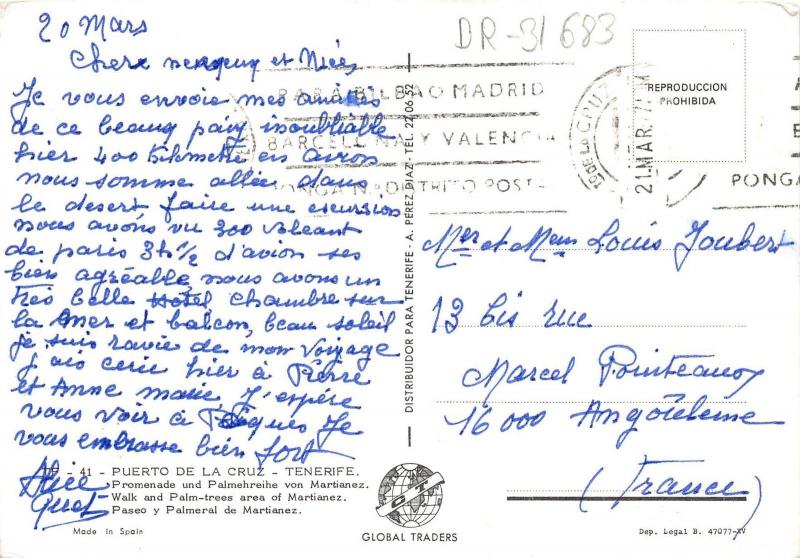 20 Mars
DR-31683
Chere et Niée,
Je vous envoie mes amitiés
de ce beaux pays inoubliable
hier 400 kilmetre en avion
nous somme allée dans
le desert faire une escursion
nous avons vu 300
de paris 3h 1/2 d'avion ses
bien agréable nous avons un
tres belle Hotel chambre sur
la mer et balcon, beau soleil
je suis ravie de mon voyage
j'ais cerie hier à Pierre
et Anne marie J'espère
vous voir à Pâques Je
vous embrasse bien fort
Alice
PARA BILBAO MADRID
BARCELONA Y VALENCIA
PONGA Nº DISTRITO POSTAL
DE LA CRUZ
21 MAR. 71
PONGA
REPRODUCCION
PROHIBIDA
DISTRIBUIDOR PARA TENERIFE - A. PEREZ DIAZ - TEL. 22 06 52
Mr et Mem Louis Joubert
13 bis rue
Marcel Pointeaux
16000 Angoulême
(France)
41 - PUERTO DE LA CRUZ - TENERIFE.
Promenade und Palmehreihe von Martianez.
Walk and Palm-trees area of Martianez.
Paseo y Palmeral de Martianez.
Made in Spain
GT
GLOBAL TRADERS
Dep. Legal B. 47077-XV